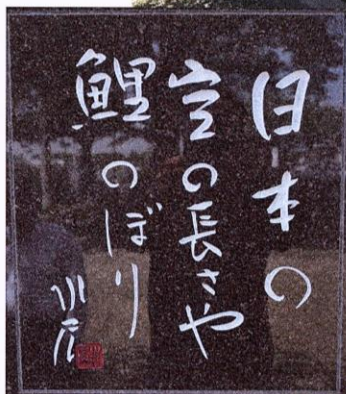 日本の
空の長さや
鯉のぼり